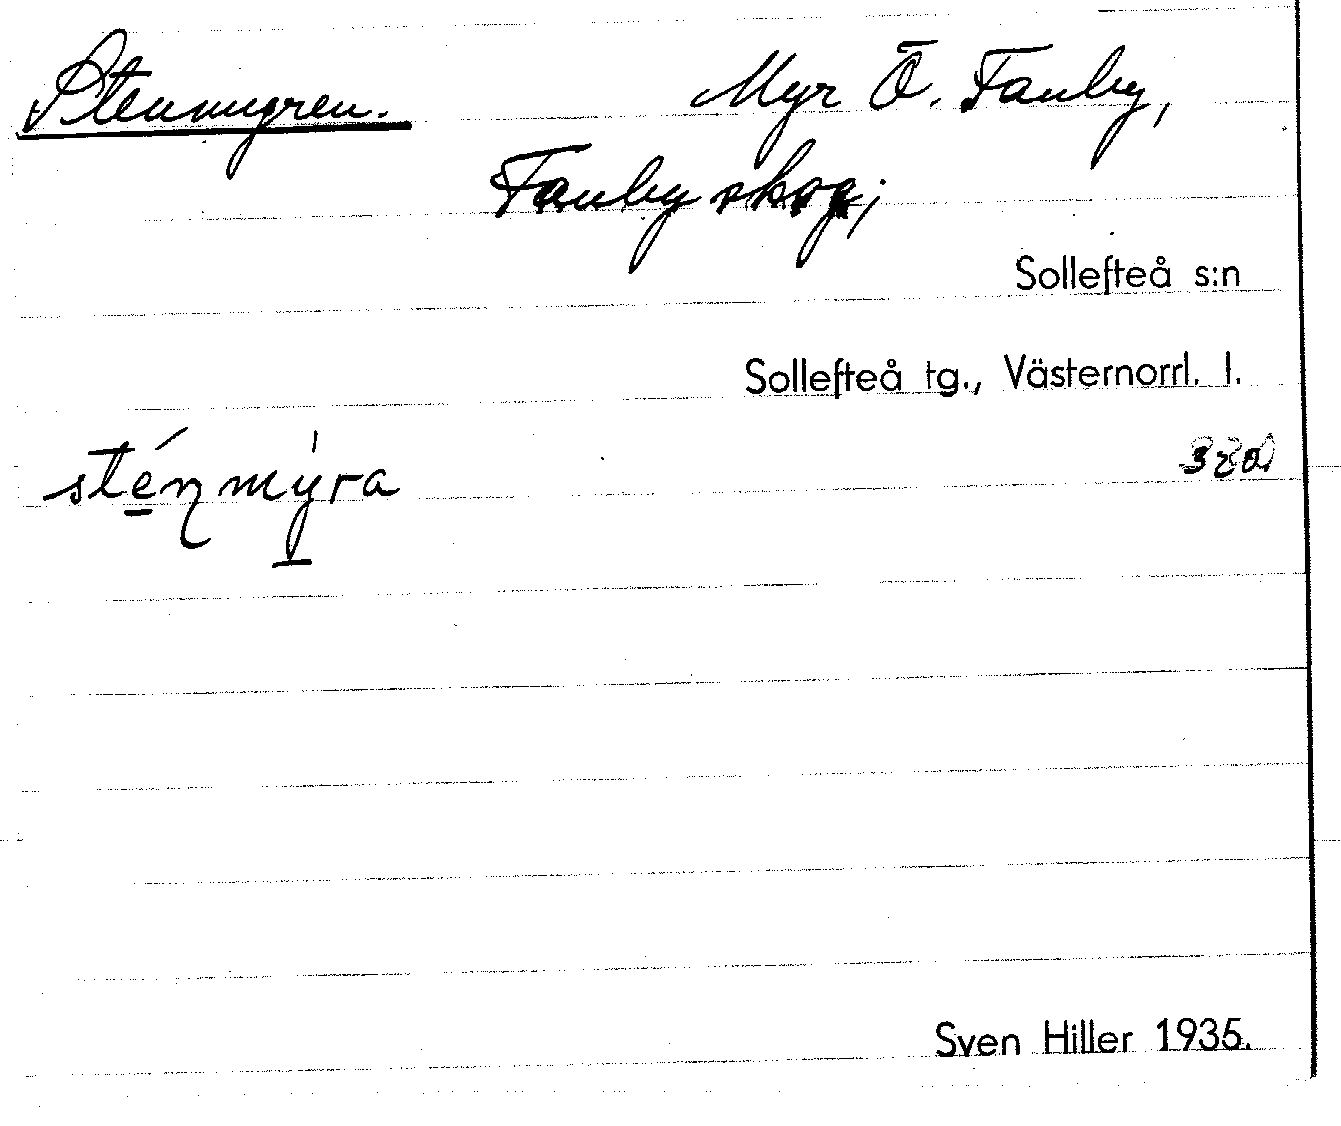 Stenmyren. Myr Ö. Tanby,
Tanby skog;
Sollefteå s:n
Sollefteå tg., Västernorrl. l.
sténmýra
Sven Hiller 1935.